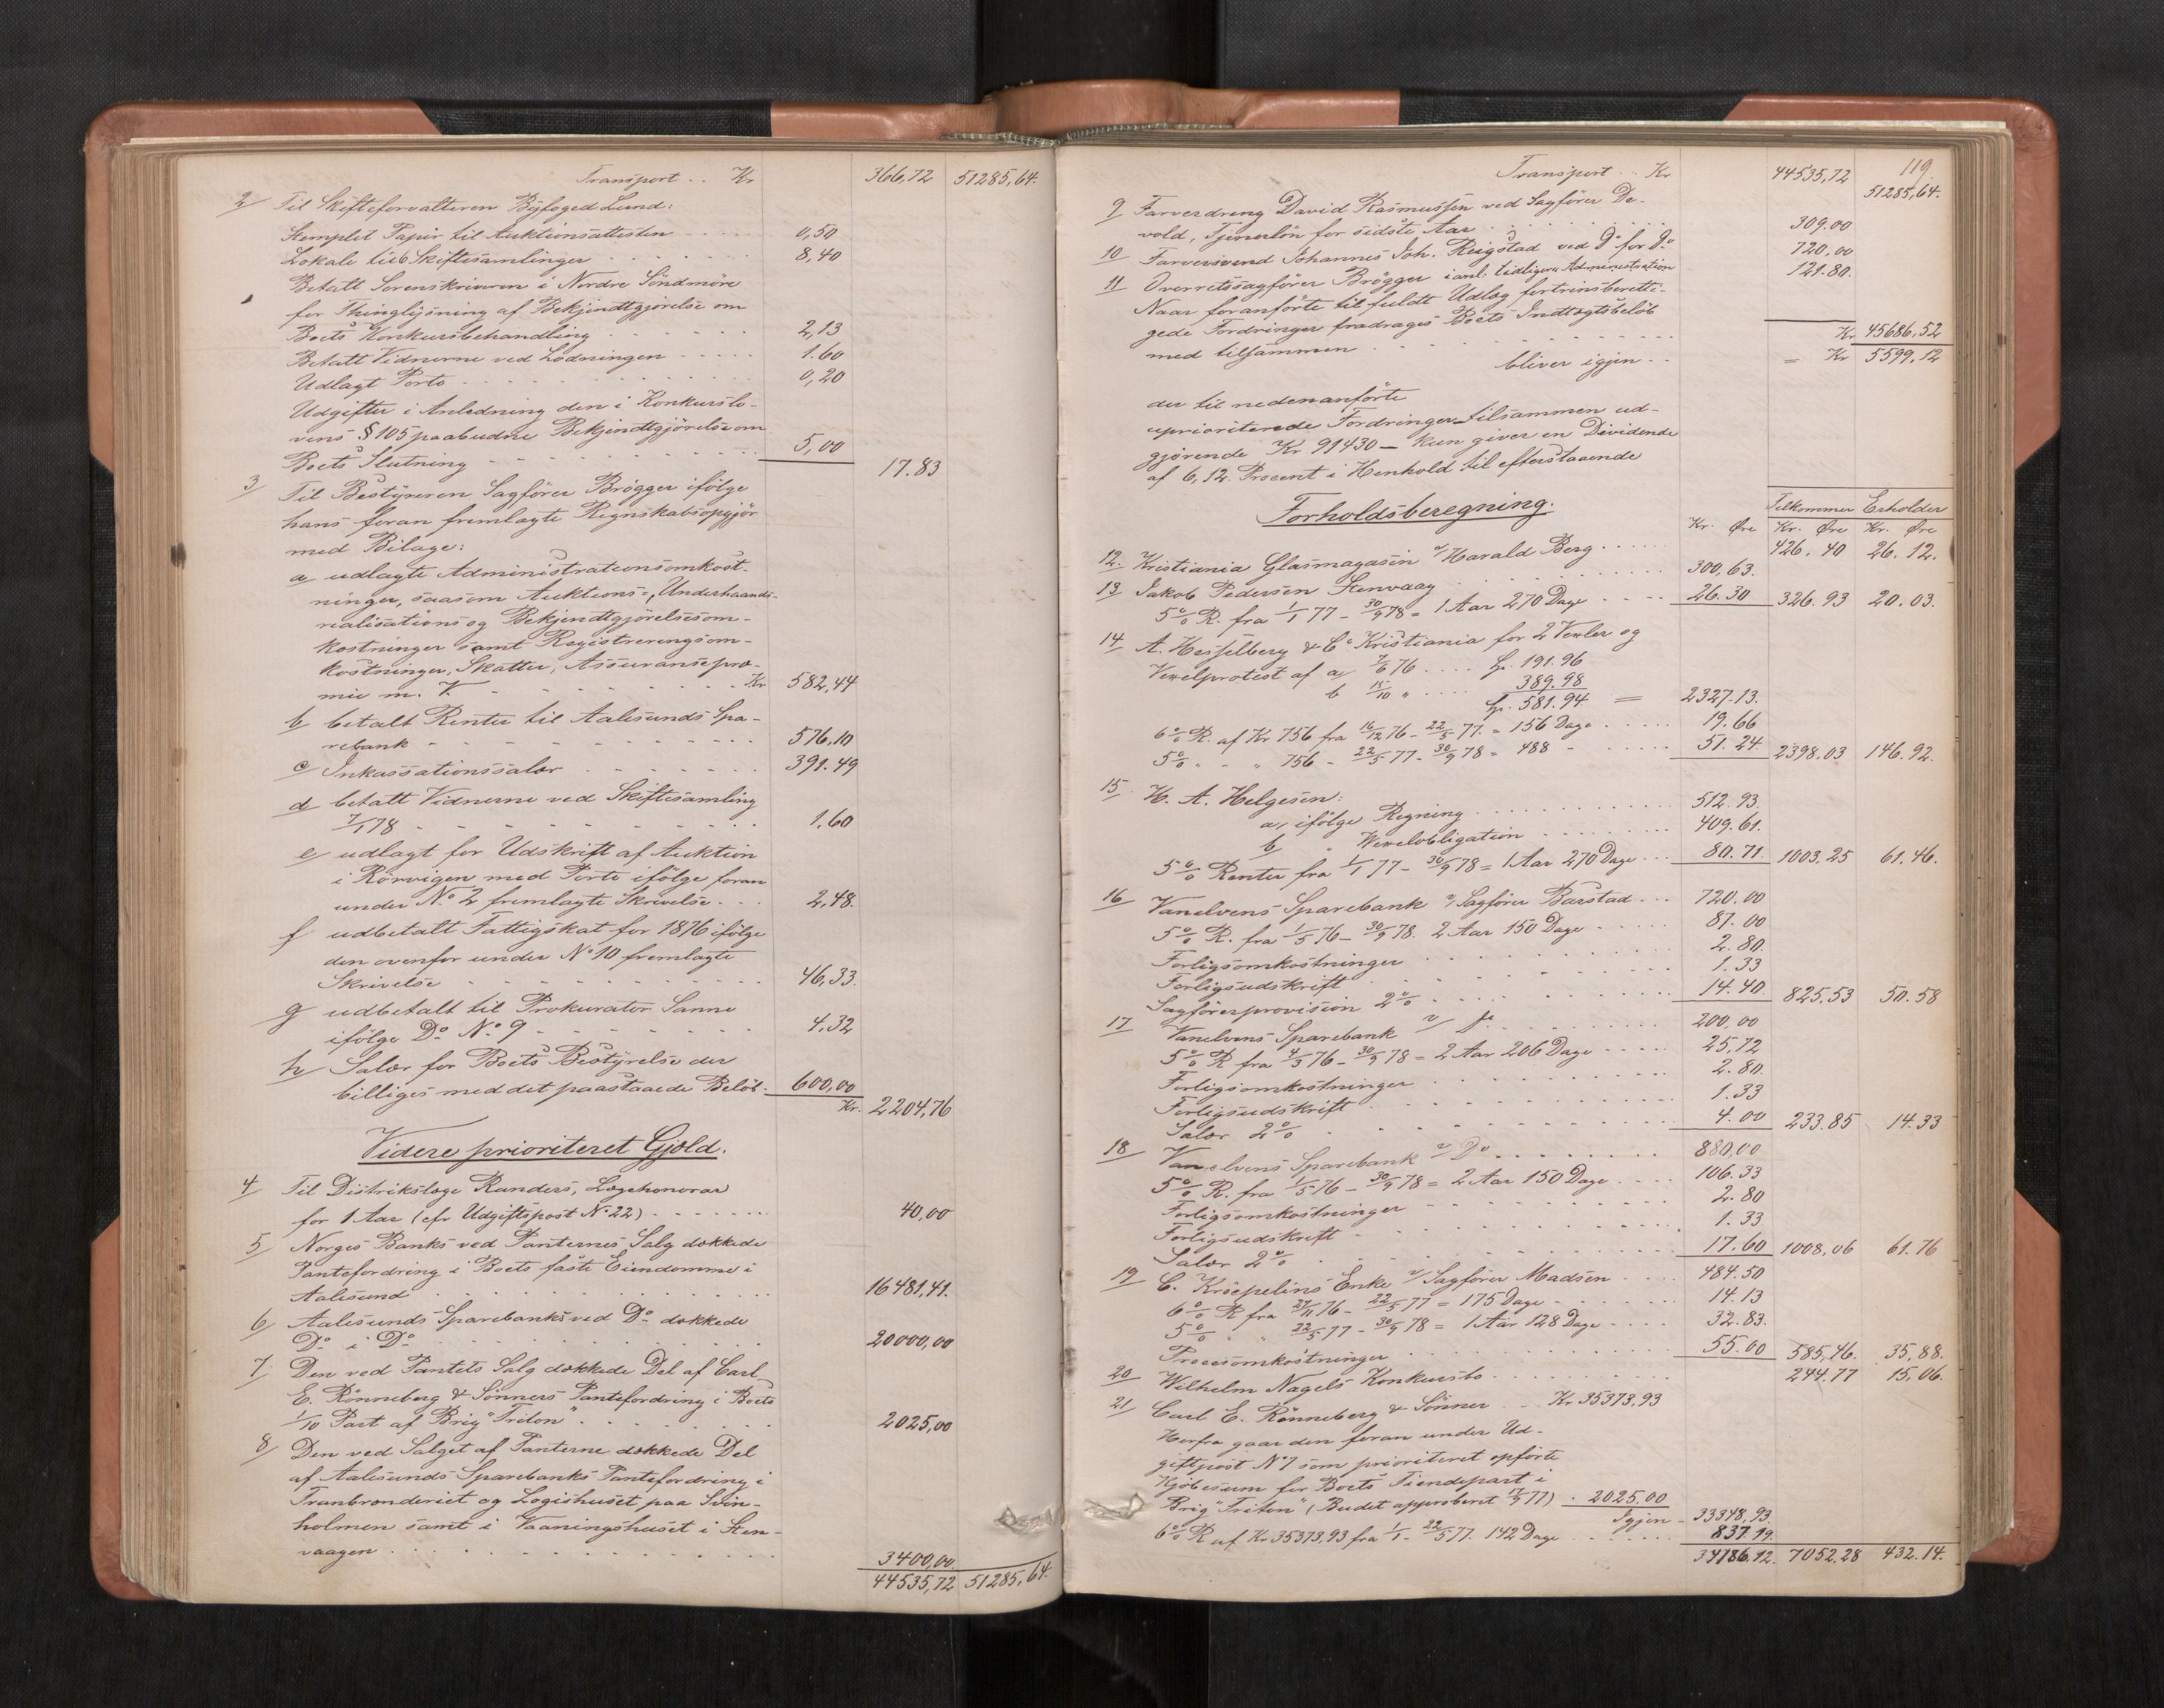 Transport .. Kr 366,72 51285,64.
2/ Til Skifteforvalteren Byfoged Lund:
Stemplet Papir til Auktionsattesten 0,50
Lokale til 6 Skiftesamlinger 8,40
Betalt Sorenskriveren i Nordre Söndmöre
for Thinglysning af Bekjendtgjörelse om
Boets Konkursbehandling 2,13
Betalt Vidnerne ved Lodningen 1.60
Udlagt Porto 0,20
Udgifter i Anledning den i Konkurslo-
vens § 105 paabudne Bekjendtgjörelse om
Boets Slutning 5,00 17.83
3/ Til Bestyreren Sagförer Brögger ifölge
hans foran fremlagte Regnskabsopgjör
med Bilage:
a udlagte Administrationsomkost-
ninger, saasom Auktions-, Underhaands-
realisations og Bekjendtgjörelsesom-
kostninger samt Registreringsom-
kostninger, Skatter, Assurancepræ-
mie m. V. Kr 582,44
b betalt Renter til Aalesunds Spa-
rebank 576,10
c Inkassationssalær 391.49
d betalt Vidnerne ved Skiftesamling
7/1 78 1.60
e udlagt for Udskrift af Auktion
i Rörvigen med Porto ifölge foran
under No 2 fremlagte Skrivelse 2,48.
f udbetalt Fattigskat for 1876 ifölge
den ovenfor under No 10 fremlagte
Skrivelse 46,33.
g udbetalt til Prokurator Sanne
ifölge Do No 9 4.32
h Salær for Boets Bestyrelse der
billiges med det paastaaede Belöb 600,00
Kr. 2204,76
Videre prioriteret Gjæld.
4/ Til Distriktslæge Randers, Lægehonorar
for 1 Aar (cfr Udgiftspost No 22) 40,00
5/ Norges Banks ved Panternes Salg dækkede
Pantefordring i Boets faste Eiendomme i
Aalesund 16481,41.
6/ Aalesunds Sparebanks ved Do dækkede
Do i Do 20000,00
7/ Den ved Pantets Salg dækkede Del af Carl
E. Rönneberg & Sönners Pantefordring i Boets
1/10 Part af Brig "Triton" 2025,00
8/ Den ved Salget af Panterne dækkede Del
af Aalesunds Sparebanks Pantefordring i
Tranbrænderiet og Logishuset paa Svin-
holmen samt i Vaaningshuset i Sten-
vaagen 3400,00.
44535,72 51285,64.
119
Transport .. Kr 44535,72 51285,64.
9 Farverdreng David Rasmussen ved Sagförer De-
vold, Tjenerlön for sidste Aar 309.00
10 Farversvend Johannes Joh. Reigstad ved Do for Do 720,00
11 Overretssagförer Brögger i anl. tidligere Administration 121.80.
Naar foranförte til fuldt Udlæg fortrinsberetti-
gede Fordringer fradrages Boets Indtægtsbelöb
med tilsammen Kr 45686,52
bliver igjen = Kr 5599,12
der til nedenanförte
uprioriterede Fordringer tilsammen ud-
gjörende Kr 91430 — kun giver en Dividende
af 6,12. Procent i Henhold til efterstaaende
Forholdsberegning.
Tilkommer Erholder
Kr. Øre Kr. Øre Kr. Øre
12. Kristiania Glasmagasin v/ Harald Berg 426. 40 26. 12.
13 Jakob Pedersen Stenvaag 300,63.
5% R. fra 1/1 77 - 30/9 78 = 1 Aar 270 Dage 26.30 326.93 20.03.
14 A. Hesselberg & Co Kristiania for 2 Vexler og
Vexelprotest af a 7/6 76 Sp. 191.96
b 15/10 " 389.98
Sp. 581.94 = 2327.13.
6% R. af Kr 756 fra 16/12 76 - 22/5 77. = 156 Dage 19.66
5% - " 756 - 22/5 77 - 30/9 78 = 488 - 51.24 2398.03 146.92.
15 H. A. Helgesen:
a, ifölge Regning 512.93.
b " Vexelobligation 409.61.
5% Renter fra 1/1 77 - 30/9 78 = 1 Aar 270 Dage 80.71 1003.25 61.46.
16 Vanelvens Sparebank v/ Sagförer Barstad 720.00
5% R. fra 1/5 76 - 30/9 78. 2 Aar 150 Dage 87.00
Forligsomkostninger 2.80.
Forligsudskrift 1.33
Sagförerprovision 2% 14.40 825.53 50.58
17 Vanelvens Sparebank v/ 200,00
5% R fra 4/3 76 - 30/9 78 = 2 Aar 206 Dage 25,72
Forligsomkostninger 2.80.
Forligsudskrift 1.33
Salær 2% 4.00 233.85 14.33
18 Vanelvens Sparebank v/ Do 880,00
5% R. fra 1/5 76 - 30/9 78 = 2 Aar 150 Dage 106.33
Forligsomkostninger 2.80
Forligsudskrift 1.33
Salær 2% 17.60 1008,06 61.76
19 C. Kröepeliens Enke v/ Sagförer Madsen 484.50
6% R fra 27/11 76 - 22/5 77 = 175 Dage 14.13
5% " " 22/5 77 - 30/9 78 = 1 Aar 128 Dage 32.83.
Procesomkostninger 55.00 585,46. 35,88.
20 Wilhelm Nagels Konkursbo 244.77 15,06.
21 Carl E. Rönneberg & Sönner Kr 35373,93
Herfra gaar den foran under Ud-
giftpost No 7 som prioriteret opförte
Kjöbesum for Boets Tiendepart i
Brig "Triton" (Budet approberet 17/9 77) 2025.00
Igjen 33348,93.
6% R af Kr 35373,93 fra 1/1 - 22/5 77. 142 Dage 837.19.
34186.12. 7052.28 432.14.